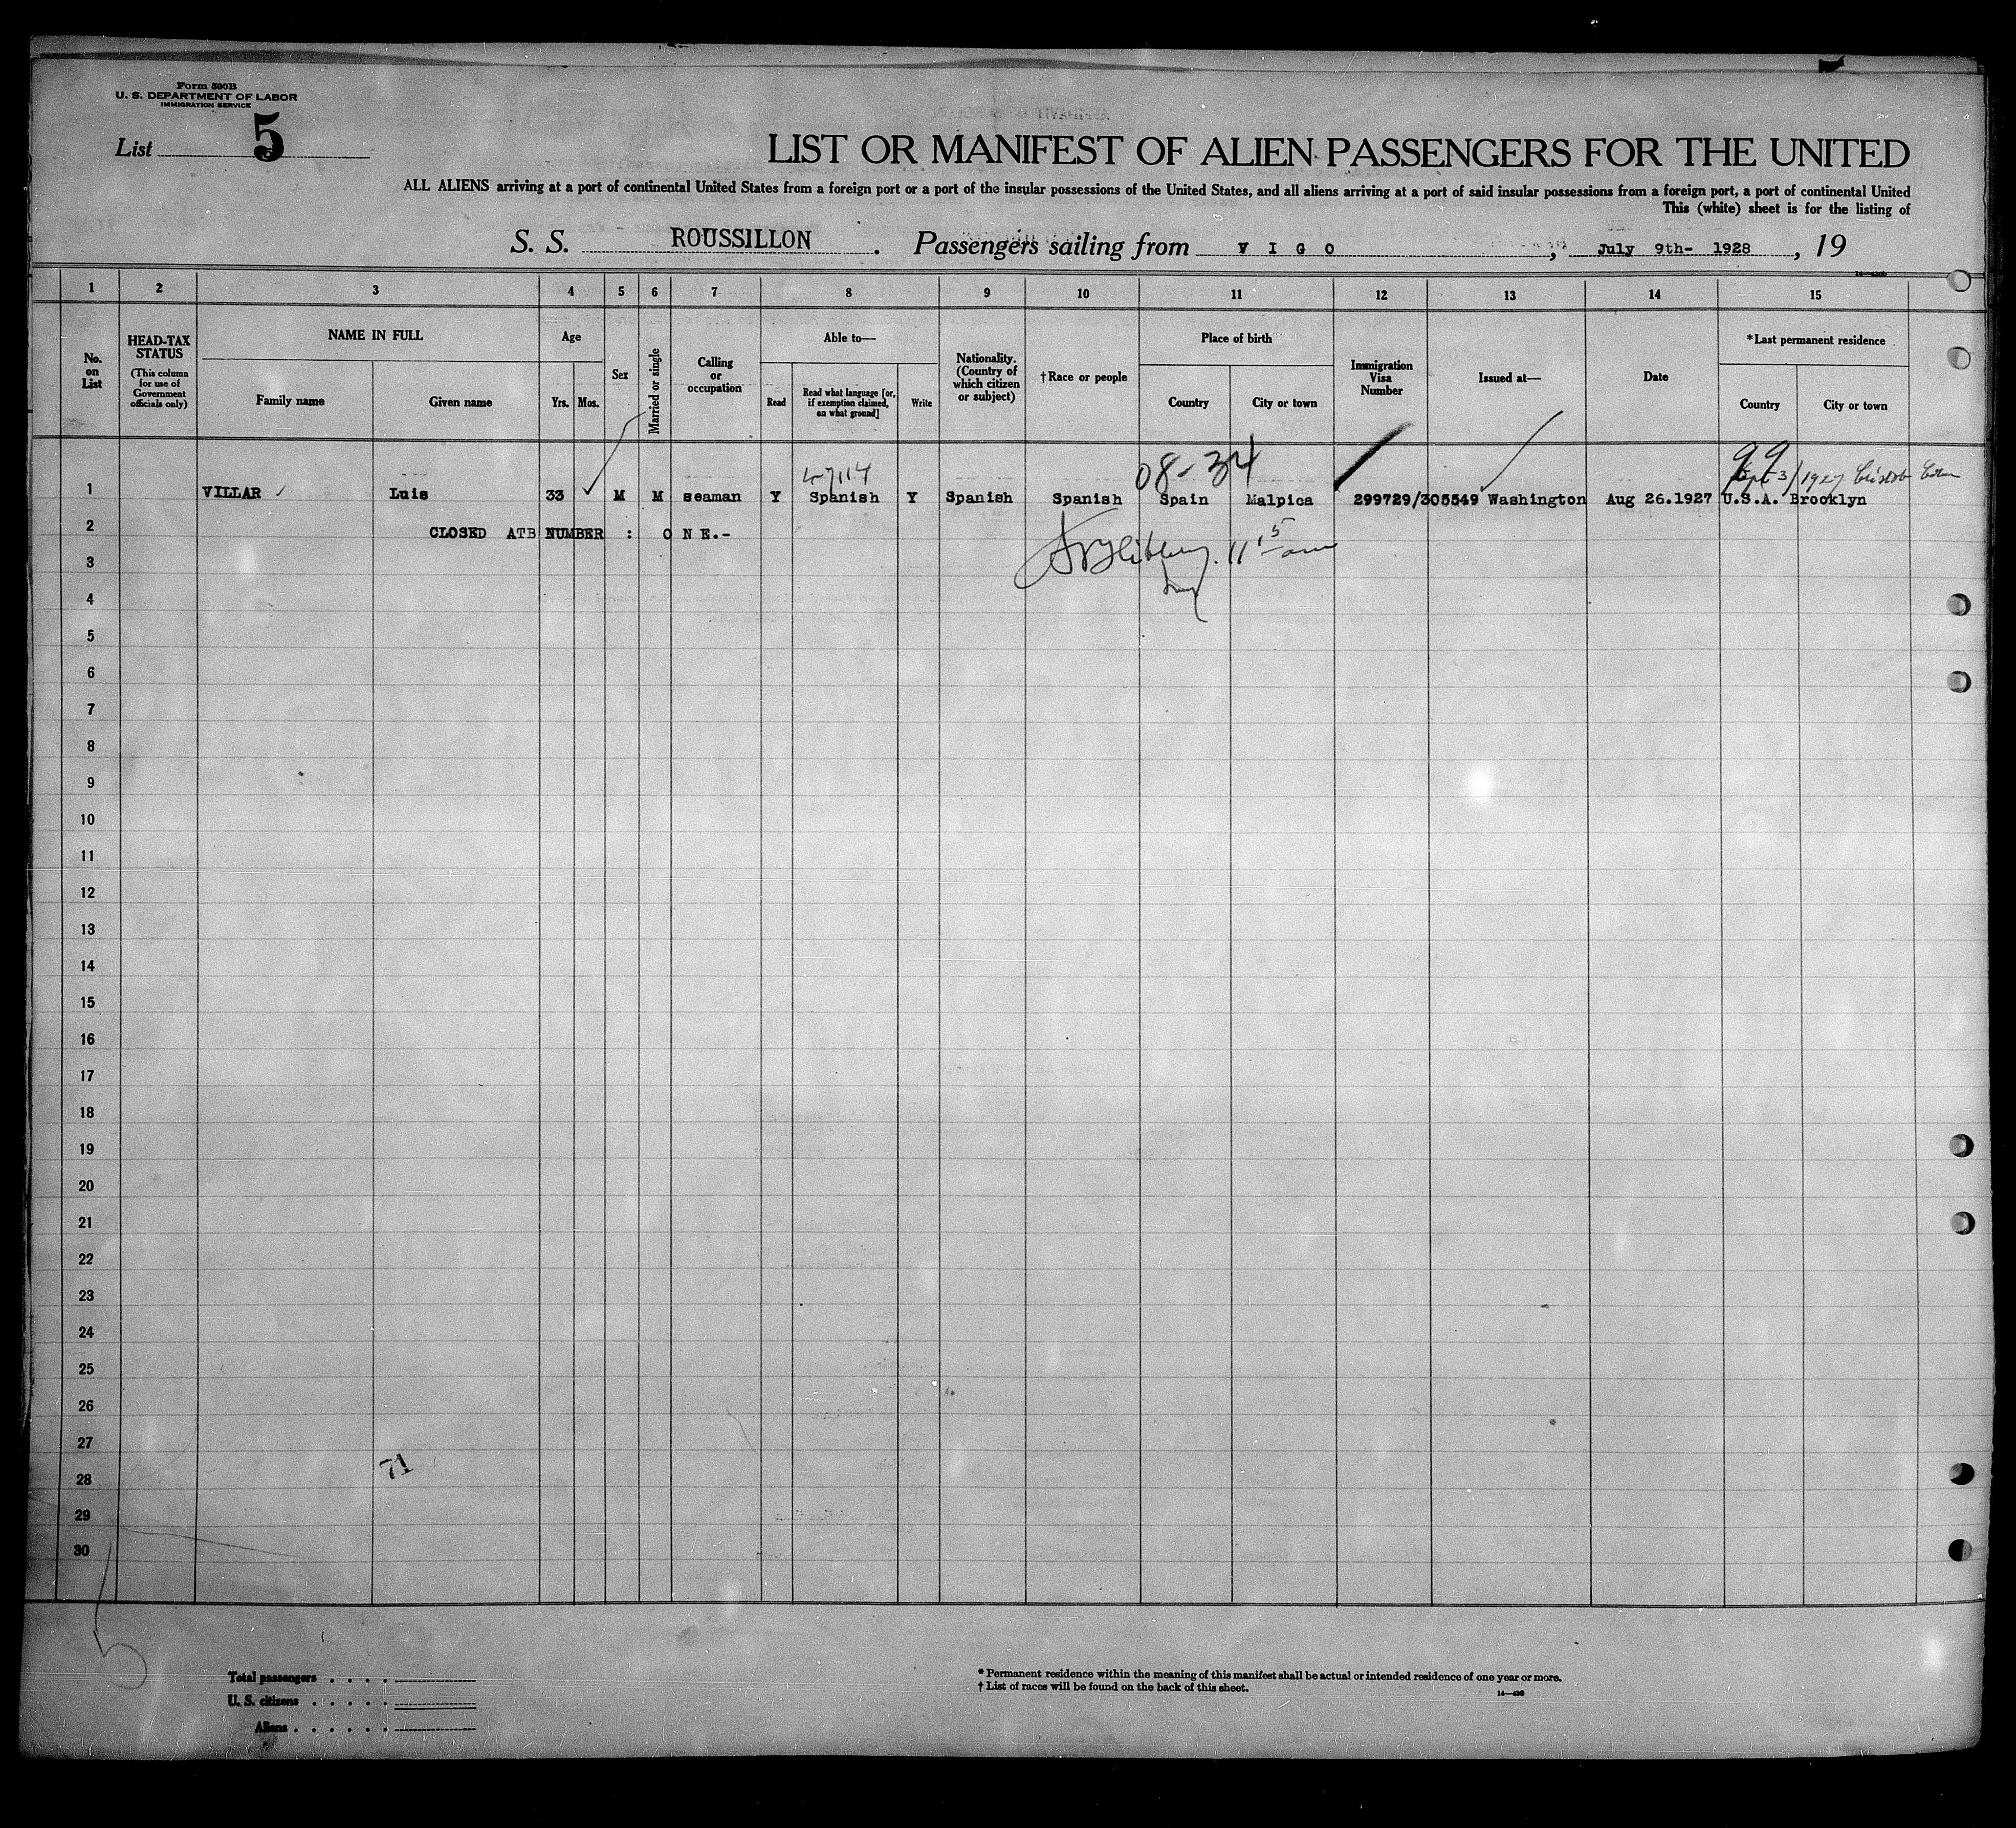 Form 500B
U. S. DEPARTMENT OF LABOR
IMMIGRATION SERVICE
List 5
LIST OR MANIFEST OF ALIEN PASSENGERS FOR THE UNITED
ALL ALIENS arriving at a port of continental United States from a foreign port or a port of the insular possessions of the United States, and all aliens arriving at a port of said insular possessions from a foreign port, a port of continental United
This (white) sheet is for the listing of
S. S. ROUSSILLON. Passengers sailing from VIGO, July 9th- 1928, 19
1 2 3 4 5 6 7 8 9 10 11 12 13 14 15
No. on List
HEAD-TAX STATUS (This column for use of Government officials only)
NAME IN FULL
Family name Given name
Age
Yrs. Mos.
Sex
Married or single
Calling or occupation
Able to—
Read Read what language [or, if exemption claimed, on what ground] Write
Nationality. (Country of which citizen or subject)
†Race or people
Place of birth
Country City or town
Immigration Visa Number
Issued at—
Date
*Last permanent residence
Country City or town
08-34 99
1 VILLAR Luis 33 M M seaman Y Spanish Y Spanish Spanish Spain Malpica 299729/305549 Washington Aug 26.1927 U.S.A. Brooklyn
2 CLOSED ATB NUMBER : O N E.-
3
4
5
6
7
8
9
10
11
12
13
14
15
16
17
18
19
20
21
22
23
24
25
26
27
71
28
29
30
Total passengers
U. S. citizens
Aliens
* Permanent residence within the meaning of this manifest shall be actual or intended residence of one year or more.
† List of races will be found on the back of this sheet.